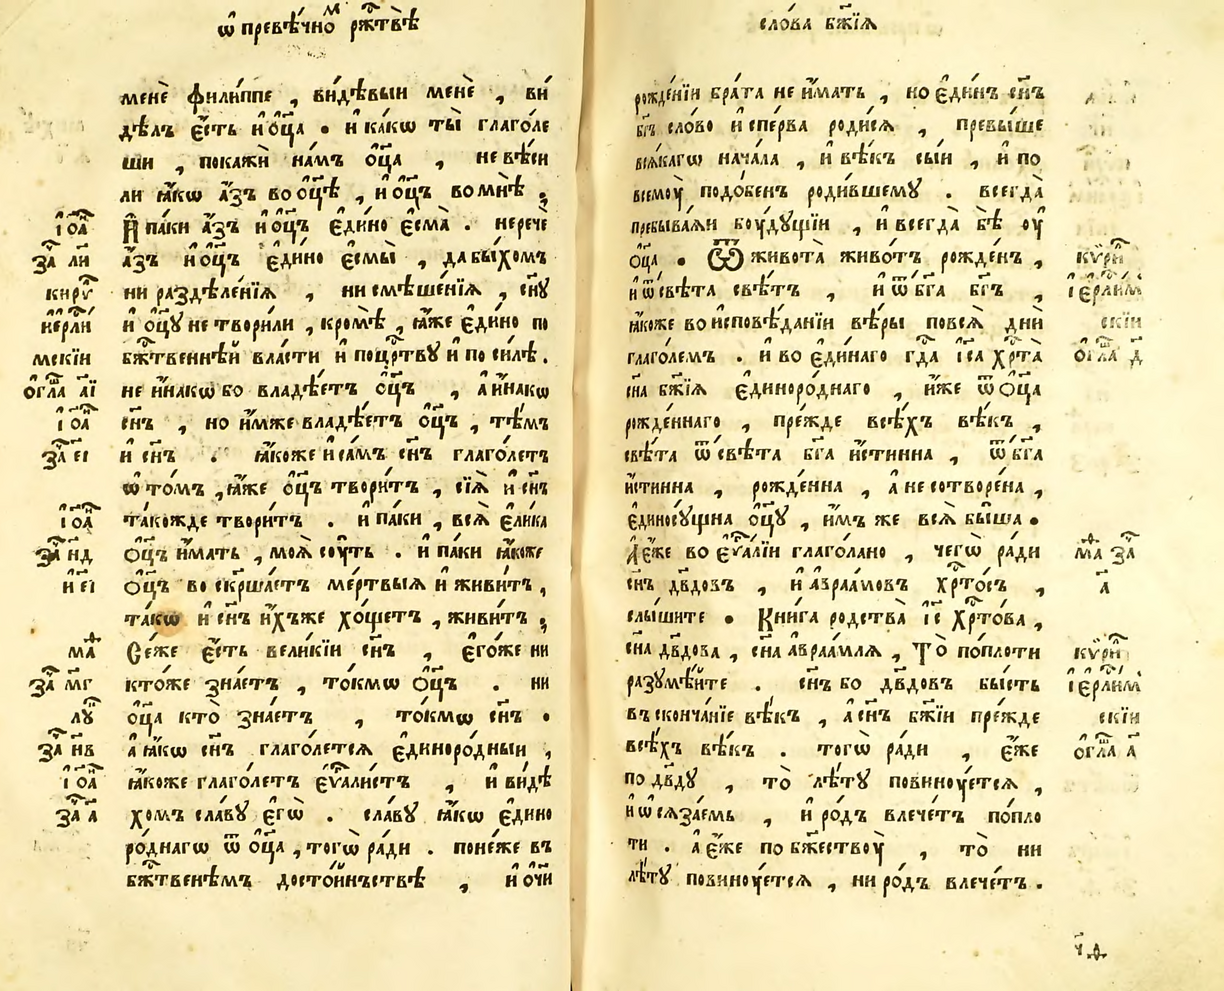 ѡ҆ превѣ́чноⷨ рж҃твѣ̀
менѐ фили́ппе , ви́дѣвыи менѐ , ви́
дѣлъ є҆́сть и҆ ѻ҆ц҃а . и҆ ка́кѡ ты̀ глаго́ле
ши , покажѝ на́мъ ѻ҆ц҃а̀ , не вѣ́си
ли ꙗ҆́кѡ а҆́зъ во ѻ҆ц҃ѣ̀ , и҆ ѻ҆ц҃ъ во мнѣ̀ ;
і҆ѡа҃
И҆ па́ки а҆́зъ и҆ ѻ҆ц҃ъ є҆ди́но є҆сма̀ . не речѐ
за҃ ли҃
а҆́зъ и҆ ѻ҆ц҃ъ є҆ди́но є҆смы̀ , да бы́хомъ
кирѵ҃
ни раздѣле́нїѧ , ни смѣше́нїѧ , сн҃ꙋ
и҆ ѻ҆ц҃ꙋ не твори́ли , кромѣ̀ , ꙗ҆́же є҆ди́но по
мскїи
бж҃твеннѣй вла́сти и҆ по црⷭ҇твꙋ и҆ по си́лѣ .
ѻ҆гла҃ аі҃
не и҆́накѡ бо владѣ́етъ ѻ҆ц҃ъ , а҆ и҆́накѡ
і҆ѡа҃
сн҃ъ , но и҆́мже владѣ́етъ ѻ҆ц҃ъ , тѣ́мъ
за҃ еі҃
и҆ сн҃ъ . ꙗ҆́коже и҆ са́мъ сн҃ъ глаго́летъ
ѡ҆ то́мъ , ꙗ҆́же ѻ҆ц҃ъ твори́тъ , сїѧ̀ и҆ сн҃ъ
і҆ѡа҃
та́кожде твори́тъ . и҆ па́ки , всѧ̀ є҆ли́ка
за҃ нд҃
ѻ҆ц҃ъ и҆́мать , моѧ̀ сꙋ́ть . и҆ па́ки ꙗ҆́коже
и҆ еі҃
ѻ҆ц҃ъ во скрⷭ҇ша́етъ ме́ртвыѧ и҆ живи́тъ ,
та́кѡ и҆ сн҃ъ и҆́хъже хо́щетъ , живи́тъ ;
маⷴ
Се́же є҆́сть вели́кїи сн҃ъ , є҆го́же ни
за҃ мг҃
кто́же зна́етъ , то́кмѡ ѻ҆ц҃ъ . ни
лꙋ҃
ѻ҆ц҃а кто̀ зна́етъ , то́кмѡ сн҃ъ .
за҃ нв҃
а҆ ꙗ҆́кѡ сн҃ъ глаго́летсѧ є҆диноро́дныи ,
і҆ѡа҃
ꙗ҆́коже глаго́летъ є҆ѵⷢ҇али́стъ , и҆ ви́дѣ
за҃ а҃
хомъ сла́вꙋ є҆гѡ̀ . сла́вꙋ ꙗ҆́кѡ є҆дино
ро́днагѡ ѿ ѻ҆ц҃а̀ , тогѡ̀ ра́ди . поне́же въ
бж҃твенѣмъ досто́инъствѣ , и҆ ѻ҆чи
сло́ва бж҃їѧ
рожде́нїи бра́та не и҆́мать , но є҆ди́нъ сн҃ъ
бг҃ъ сло́во и҆ спе́рва роди́сѧ , превы́ше
всѧ́кагѡ нача́ла , и҆ вѣ́къ сы́и , и҆ по
всемоу̀ подо́бенъ роди́вшемꙋ . всегда̀
пребыва́ѧи боу́дꙋщїи , и҆ всегда̀ бѣ̀ оу҆
ѻ҆ц҃а . Ѿ живота̀ живо́тъ рожде́нъ ,
кѵ́рїⷧ
и҆ ѿ свѣ́та свѣ́тъ , и҆ ѿ бг҃а бг҃ъ ,
і҆єрⷭ҇лим
ꙗ҆́коже во и҆сповѣ́данїи вѣ́ры по всѧ̀ дни̑
скїи
глаго́лемъ . и҆ во є҆ди́наго гд҃а і҆с҃а хрⷭ҇та̀
ѻ҆гла҃ д҃
сн҃а бж҃їѧ є҆диноро́днаго , и҆́же ѿ ѻ҆ц҃а
рожде́ннаго , пре́жде всѣ́хъ вѣ́къ ,
свѣ́та ѿ свѣ́та бг҃а и҆́стинна , ѿ бг҃а
и҆́стинна , рожде́нна , а҆ не сотворе́на ,
є҆диносꙋ́щна ѻ҆ц҃ꙋ , и҆́мъ же всѧ̀ бы́ша .
А҆ є҆́же во є҆ѵⷢ҇алїи глаго́лано , чегѡ̀ ра́ди
маⷴ за҃
сн҃ъ дв҃довъ , и҆ а҆враа́мовъ хрⷭ҇то́съ ,
а҃
слы́шите . Кни́га родства̀ і҆с҃ хрⷭ҇то́ва ,
сн҃а дв҃дова , сн҃а а҆враа́млѧ , То̀ по пло́ти
кѵ́рїⷧ
разꙋмѣ́йте . сн҃ъ бо дв҃довъ бы́сть
і҆єрⷭ҇лим
въ сконча́нїе вѣ́къ , а҆ сн҃ъ бж҃їи пре́жде
скїи
всѣ́хъ вѣ́къ . тогѡ̀ ра́ди , є҆́же
ѻ҆гла҃ а҃
по дв҃дꙋ , то̀ лѣ́тꙋ повиноу́етсѧ ,
и҆ ѡ҆сѧза́емь , и҆ ро́дъ влече́тъ по пло
ти . а҆ є҆́же по бж҃ествоу̀ , то̀ ни
лѣ́тꙋ повиноу́етсѧ , ни ро́дъ влече́тъ .